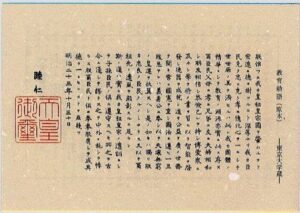 教育勅語(原本)
―東京大学蔵―
朕惟フニ我カ皇祖皇宗國ヲ肇ムルコト
宏遠ニ德ヲ樹ツルコト深厚ナリ我カ臣
民克ク忠ニ克ク孝ニ億兆心ヲ一ニシテ
世世厥ノ美ヲ濟セルハ此レ我カ國體ノ
精華ニシテ教育ノ淵源亦實ニ此ニ存ス
爾臣民父母ニ孝ニ兄弟ニ友ニ夫婦相和
シ朋友相信シ恭儉己レヲ持シ博愛衆ニ
及ホシ學ヲ修メ業ヲ習ヒ以テ智能ヲ啓
發シ德器ヲ成就シ進テ公益ヲ廣メ世務
ヲ開キ常ニ國憲ヲ重シ國法ニ遵ヒ一旦
緩急アレハ義勇公ニ奉シ以テ天壤無窮
ノ皇運ヲ扶翼スヘシ是ノ如キハ獨リ朕
カ忠良ノ臣民タルノミナラス又以テ爾
祖先ノ遺風ヲ顯彰スルニ足ラン
斯ノ道ハ實ニ我カ皇祖皇宗ノ遺訓ニシ
テ子孫臣民ノ倶ニ遵守スヘキ所之ヲ古
今ニ通シテ謬ラス之ヲ中外ニ施シテ悖
ラス朕爾臣民ト倶ニ拳々服膺シテ咸其
德ヲ一ニセンコトヲ庶幾フ
明治二十三年十月三十日
睦仁
天皇
御璽